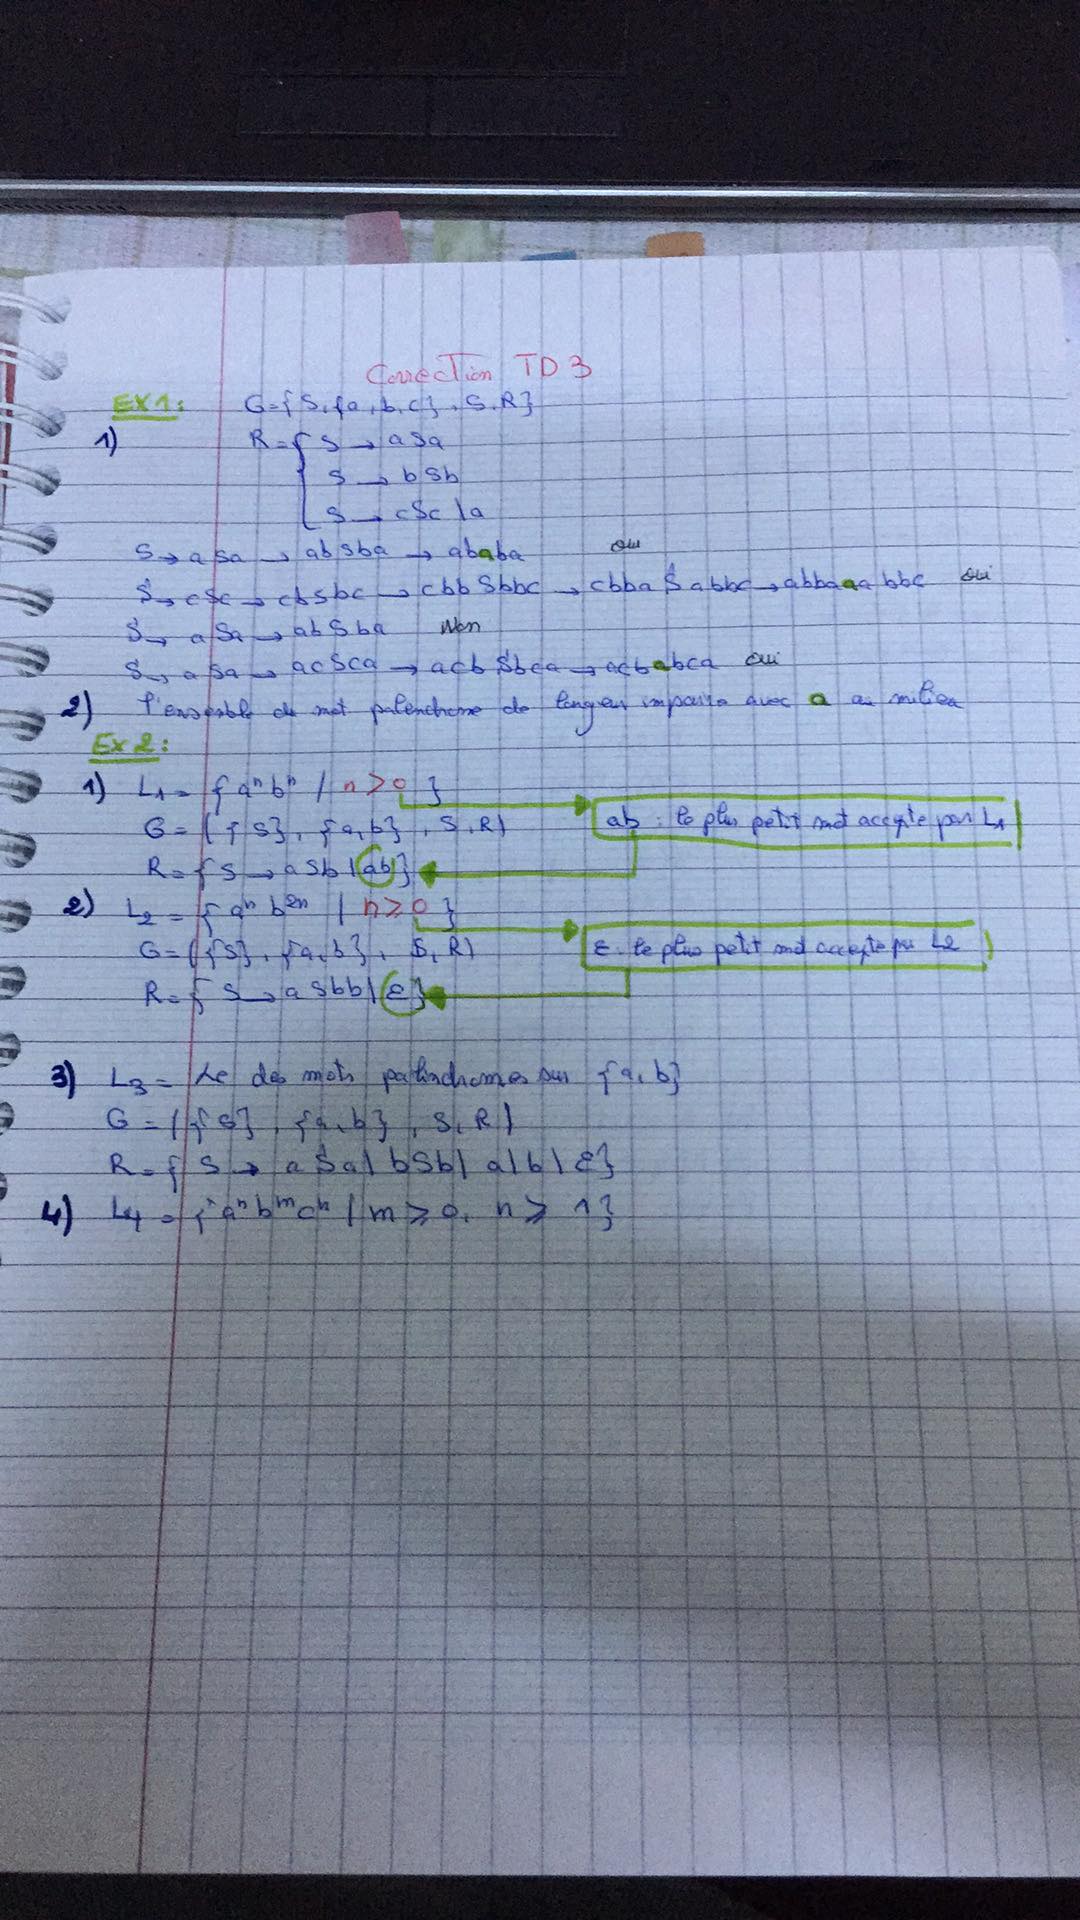 Correction TD 3
EX1: G={S,{a,b,c},S,R}
1) R={ S → aSa
S → bSb
S → cSc|a
S → aSa → abSba → ababa oui
S → cSc → cbsbc → cbbSbbc → cbbaSabbc → abbaaabbc oui
S → aSa → abSba Non
S → aSa → acSca → acbSbca → acbabca oui
2) l'ensemble de mot palendrome de longeur impaire avec a au milieu
Ex2:
1) L1 = {aⁿbⁿ / n>0}
G = ({S}, {a,b}, S, R) ab : le plus petit mot accepte par L1
R = { S → aSb|ab}
2) L2 = {aⁿb²ⁿ / n≥0}
G = ({S}, {a,b}, S, R) ε : le plus petit mot accepte par L2
R = { S → aSbb|ε}
3) L3 = Le des mots palindromes sur {a,b}
G = ({S}, {a,b}, S, R)
R = { S → aSa|bSb|a|b|ε}
4) L4 = {aⁿbᵐcⁿ / m≥0, n≥1}